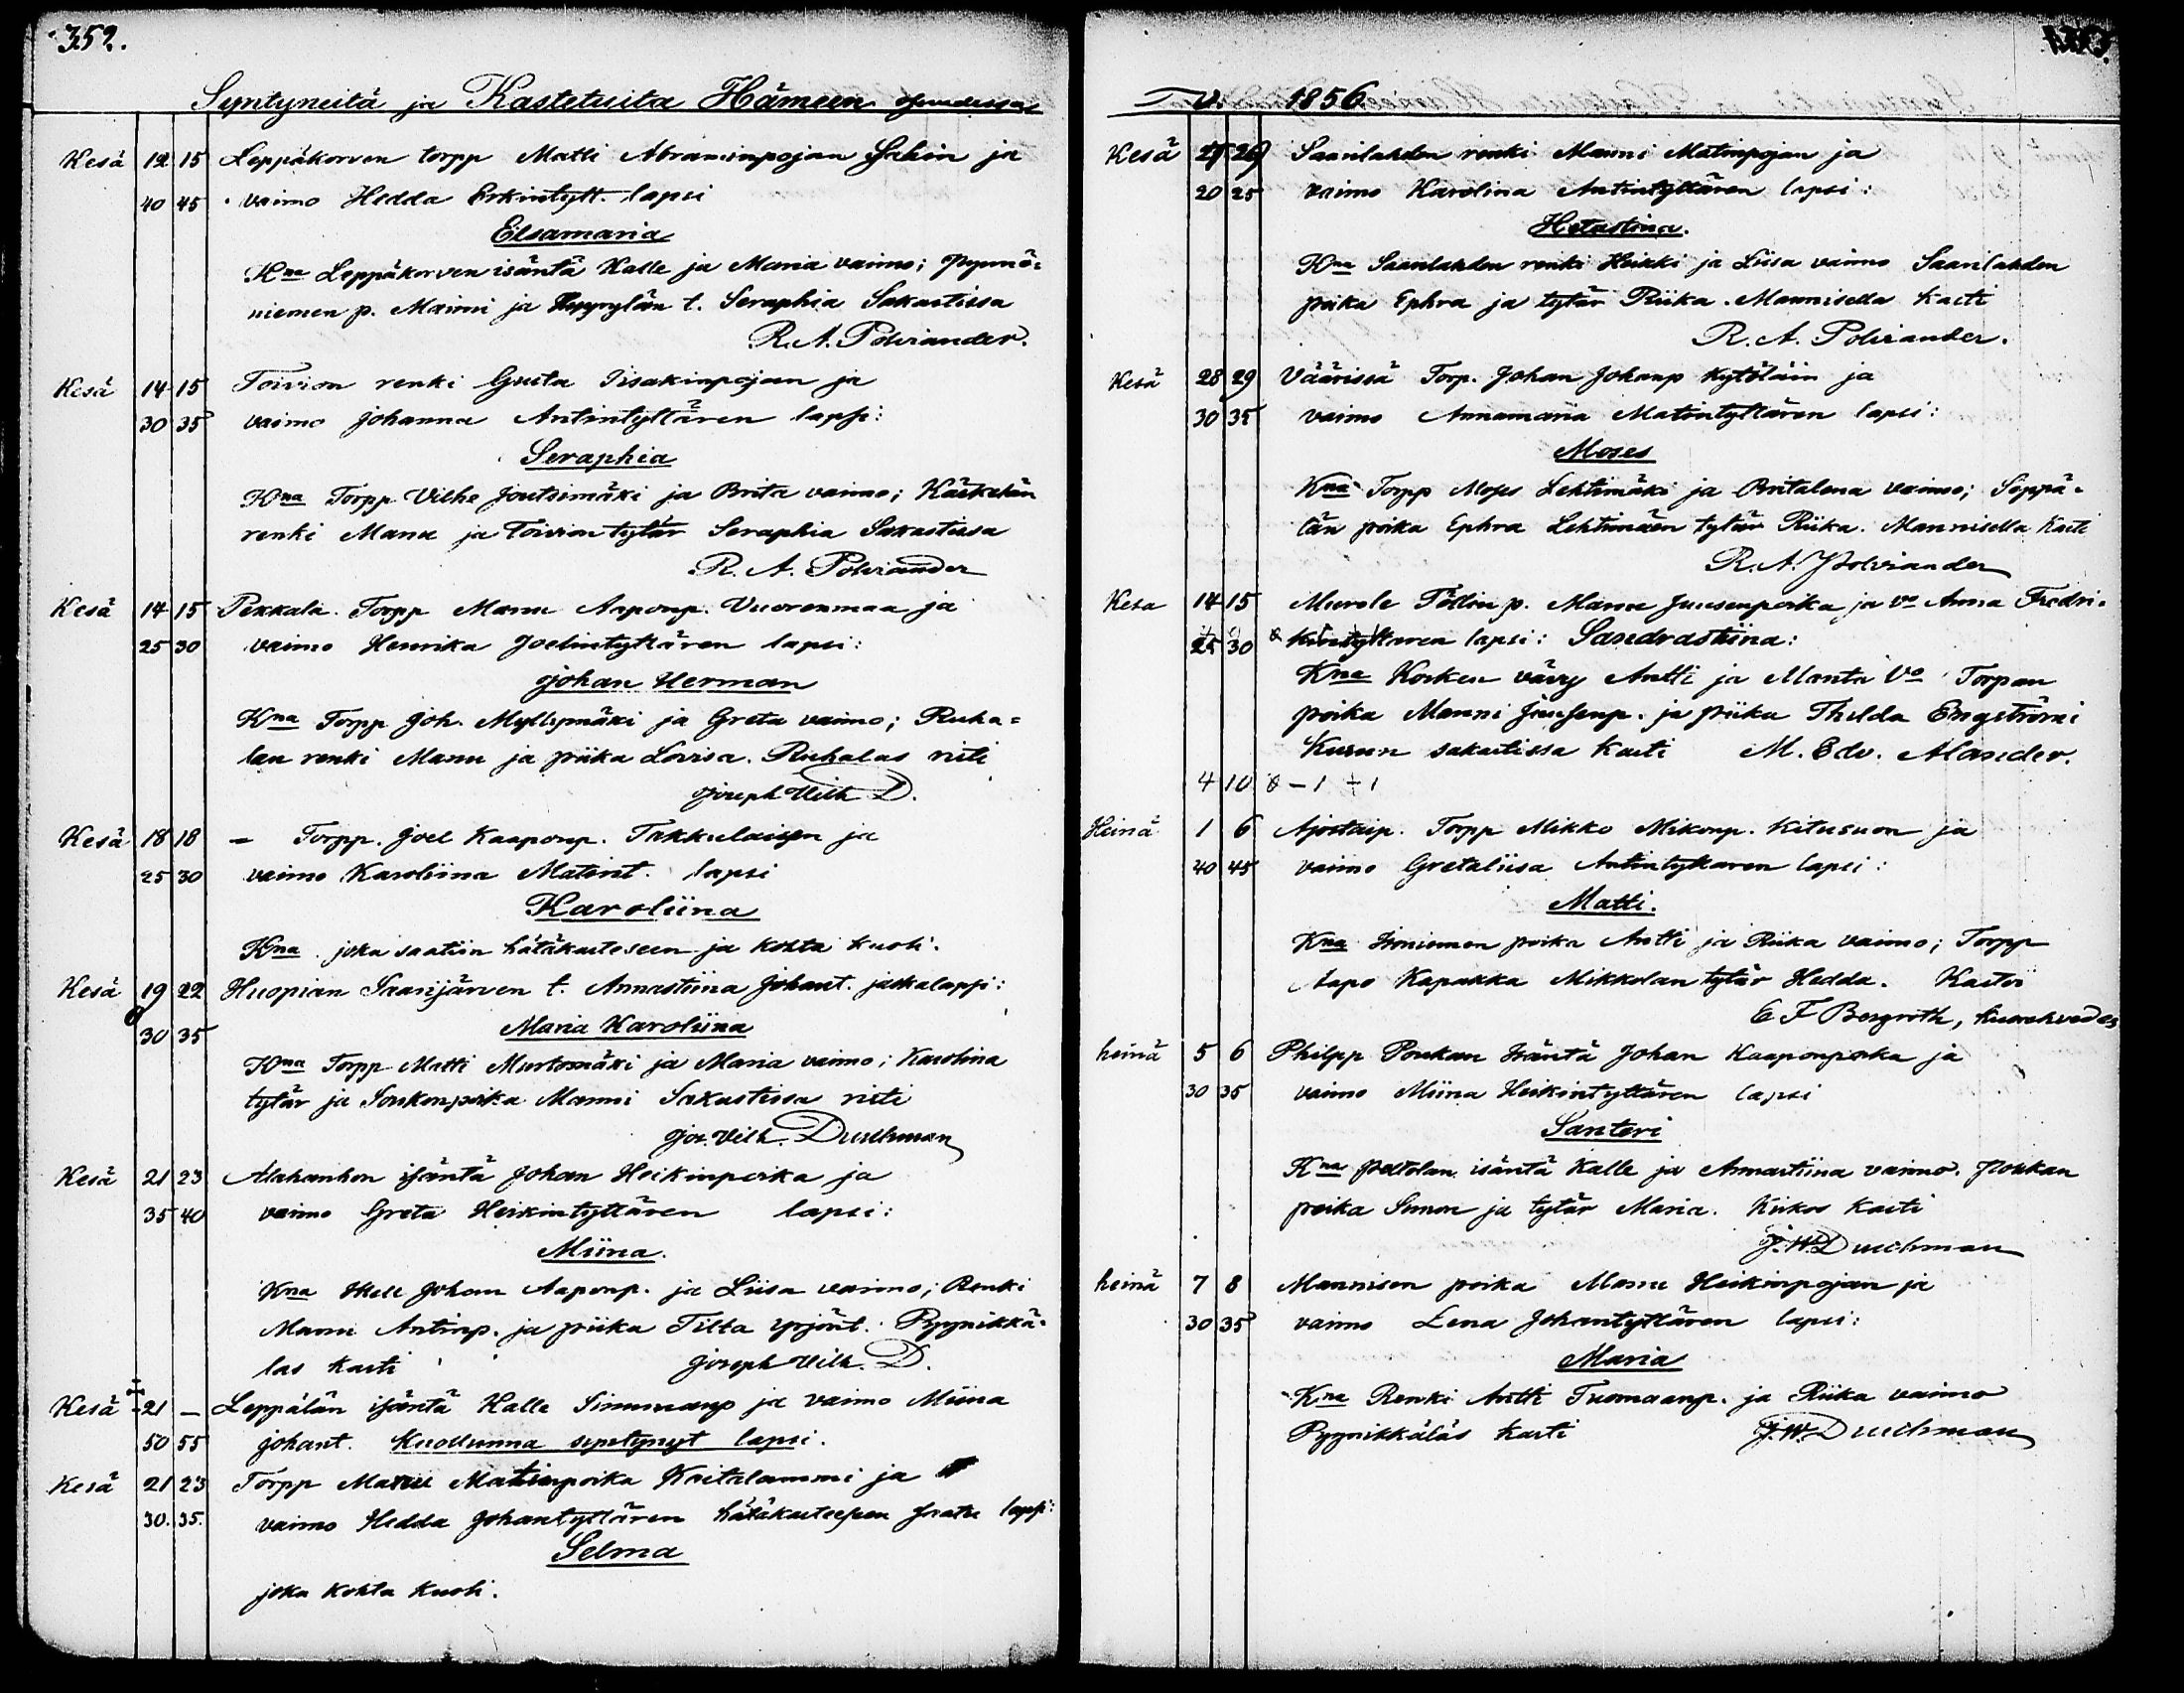 352.
Syntyneitä ja Kastetuita Hämeen
Kesä 12 15 Leppäkorven torpp Matti Abraminpojan ja
40 45 vaimo Hedda Erkintytt. lapsi
Elsamaria
Kna Leppäkorven isäntä Kalle ja Maria vaimo;
niemen p. Manni ja t. Seraphia Sakastissa
R. A. Polviander.
Kesä 14 15 Toivion renki Gusta Iisakinpojan ja
30 35 vaimo Johanna Antintyttären lapsi:
Seraphia
Kna Torpp Vilhe Joutsimäki ja Brita vaimo; Käskelän
renki Manu ja Toivion tytär Seraphia Sakastissa
R. A. Polviander
Kesä 14 15 Pekkala. Torpp Manu Aaponp. Vuorenmaa ja
25 30 vaimo Henrika Joelintyttären lapsi:
Johan Herman
Kna Torpp Joh. Myllymäki ja Greta vaimo; Ruha=
lan renki Manu ja piika Lovisa. Ruhalas risti
Joseph Vilh D.
Kesä 18 18 – Torpp. Joel Kaaponp. Takkulaisen ja
25 30 vaimo Karoliina Matint. lapsi
Karoliina
Kna joka saatiin hätäkasteseen ja kohta kuoli.
Kesä 19 22 Huopian Saarijärven t. Annastiina Johant. jaskalapsi:
30 35 Maria Karoliina
Kna Torpp Matti Murtomäki ja Maria vaimo; Karolina
tytär ja Soukonpoika Manni Sakastissa risti
Jos. Vilh. Duchman
Kesä 21 23 Alahanhon isäntä Johan Heikinpoika ja
35 40 vaimo Greta Heikintyttären lapsi:
Miina.
Kna Itell Johan Aaponp. ja Liisa vaimo; Renki
Manu Antinp. ja piika Tilta Yrjönt. Pyynikkä-
läs kasti Joseph Vilh. D.
Kesä 21 – Leppälän isäntä Kalle Simunanp ja vaimo Miina
50 55 Johant. Kuollunna syntynyt lapsi.
Kesä 21 23 Torpp Manu Matinpoika Kaitalammi ja
30. 35. vaimo Hedda Johantyttären hätäkasteesen saatu lapsi:
Selma
joka kohta kuoli.
v. 1856
Kesä 27 29 Saarilahden renki Manni Matinpojan ja
20 25 vaimo Karolina Antintyttären lapsi:
Hetastina.
Kna Saarilahden renki Heikki ja Liisa vaimo Saarilahden
poika Ephra ja tytär Riika. Mannisella kasti
R. A. Polviander.
Kesä 28 29 Väärissä Torp. Johan Johanp Kytöläin ja
30 35 vaimo Annamaria Matintyttären lapsi:
Moses
Kna Torpp Moses Lehtimäki ja Britalena vaimo; Seppä-
län poika Ephra Lehtimäen tytär Riika. Mannisella Kasti
R. A. Polviander
Kesa 14 15 Murole Töllin p. Manu Juusenpoika ja vo Anna Fredri-
25 30 kintyttaren lapsi: Sandrastiina:
Kna Kosken värry Antti ja Manta Vo Torpan
poika Manni Juusenp. ja piika Thilda Engströmi
Kurun sakastissa kasti M. Edv. Alander.
4 10 – 1 ÷ 1
Heinä 1 6 Ajostaip. Torpp Mikko Mikonp. Kitusuon ja
40 45 vaimo Gretaliisa Antintyttaren lapsi:
Matti.
Kna poika Antti ja Riika vaimo; Torpp
Aapo Kapakka Mikkolan tytär Hedda. Kastoi
C F Bergroth,
heinä 5 6 Philpp Poukan Isäntä Johan Kaaponpoika ja
30 35 vaimo Miina Heikintyttären lapsi
Santeri
Kna Peltolan isäntä Kalle ja Annastiina vaimo. Poukan
poika Simon ja tytär Maria. Kirkos kasti
J. W. Duchman
heinä 7 8 Mannisen poika Manu Heikinpojan ja
30 35 vaimo Lena Johantyttären lapsi:
Maria
Kna Renki Antti Tuomaanp. ja Riika vaimo
Pyynikkäläs kasti J. W. Duchman